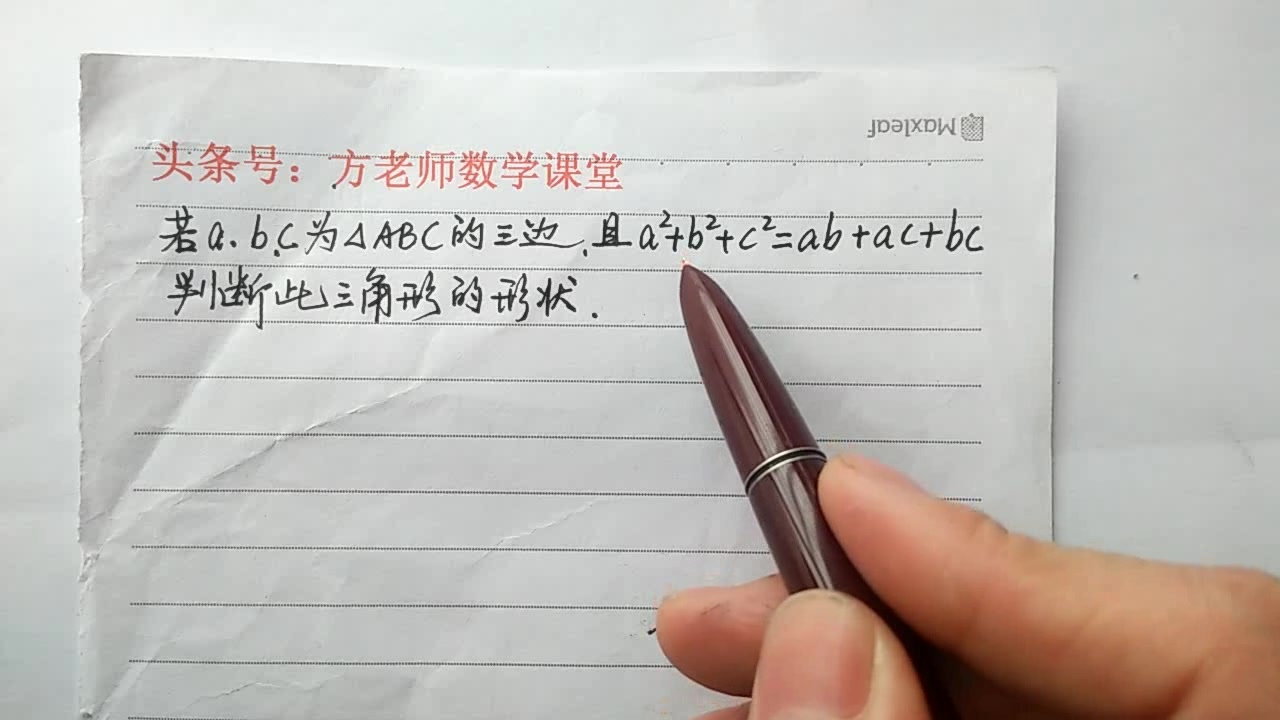 Maxleaf
头条号：方老师数学课堂
若a、b、c为△ABC的三边，且a²+b²+c²=ab+ac+bc
判断此三角形的形状．